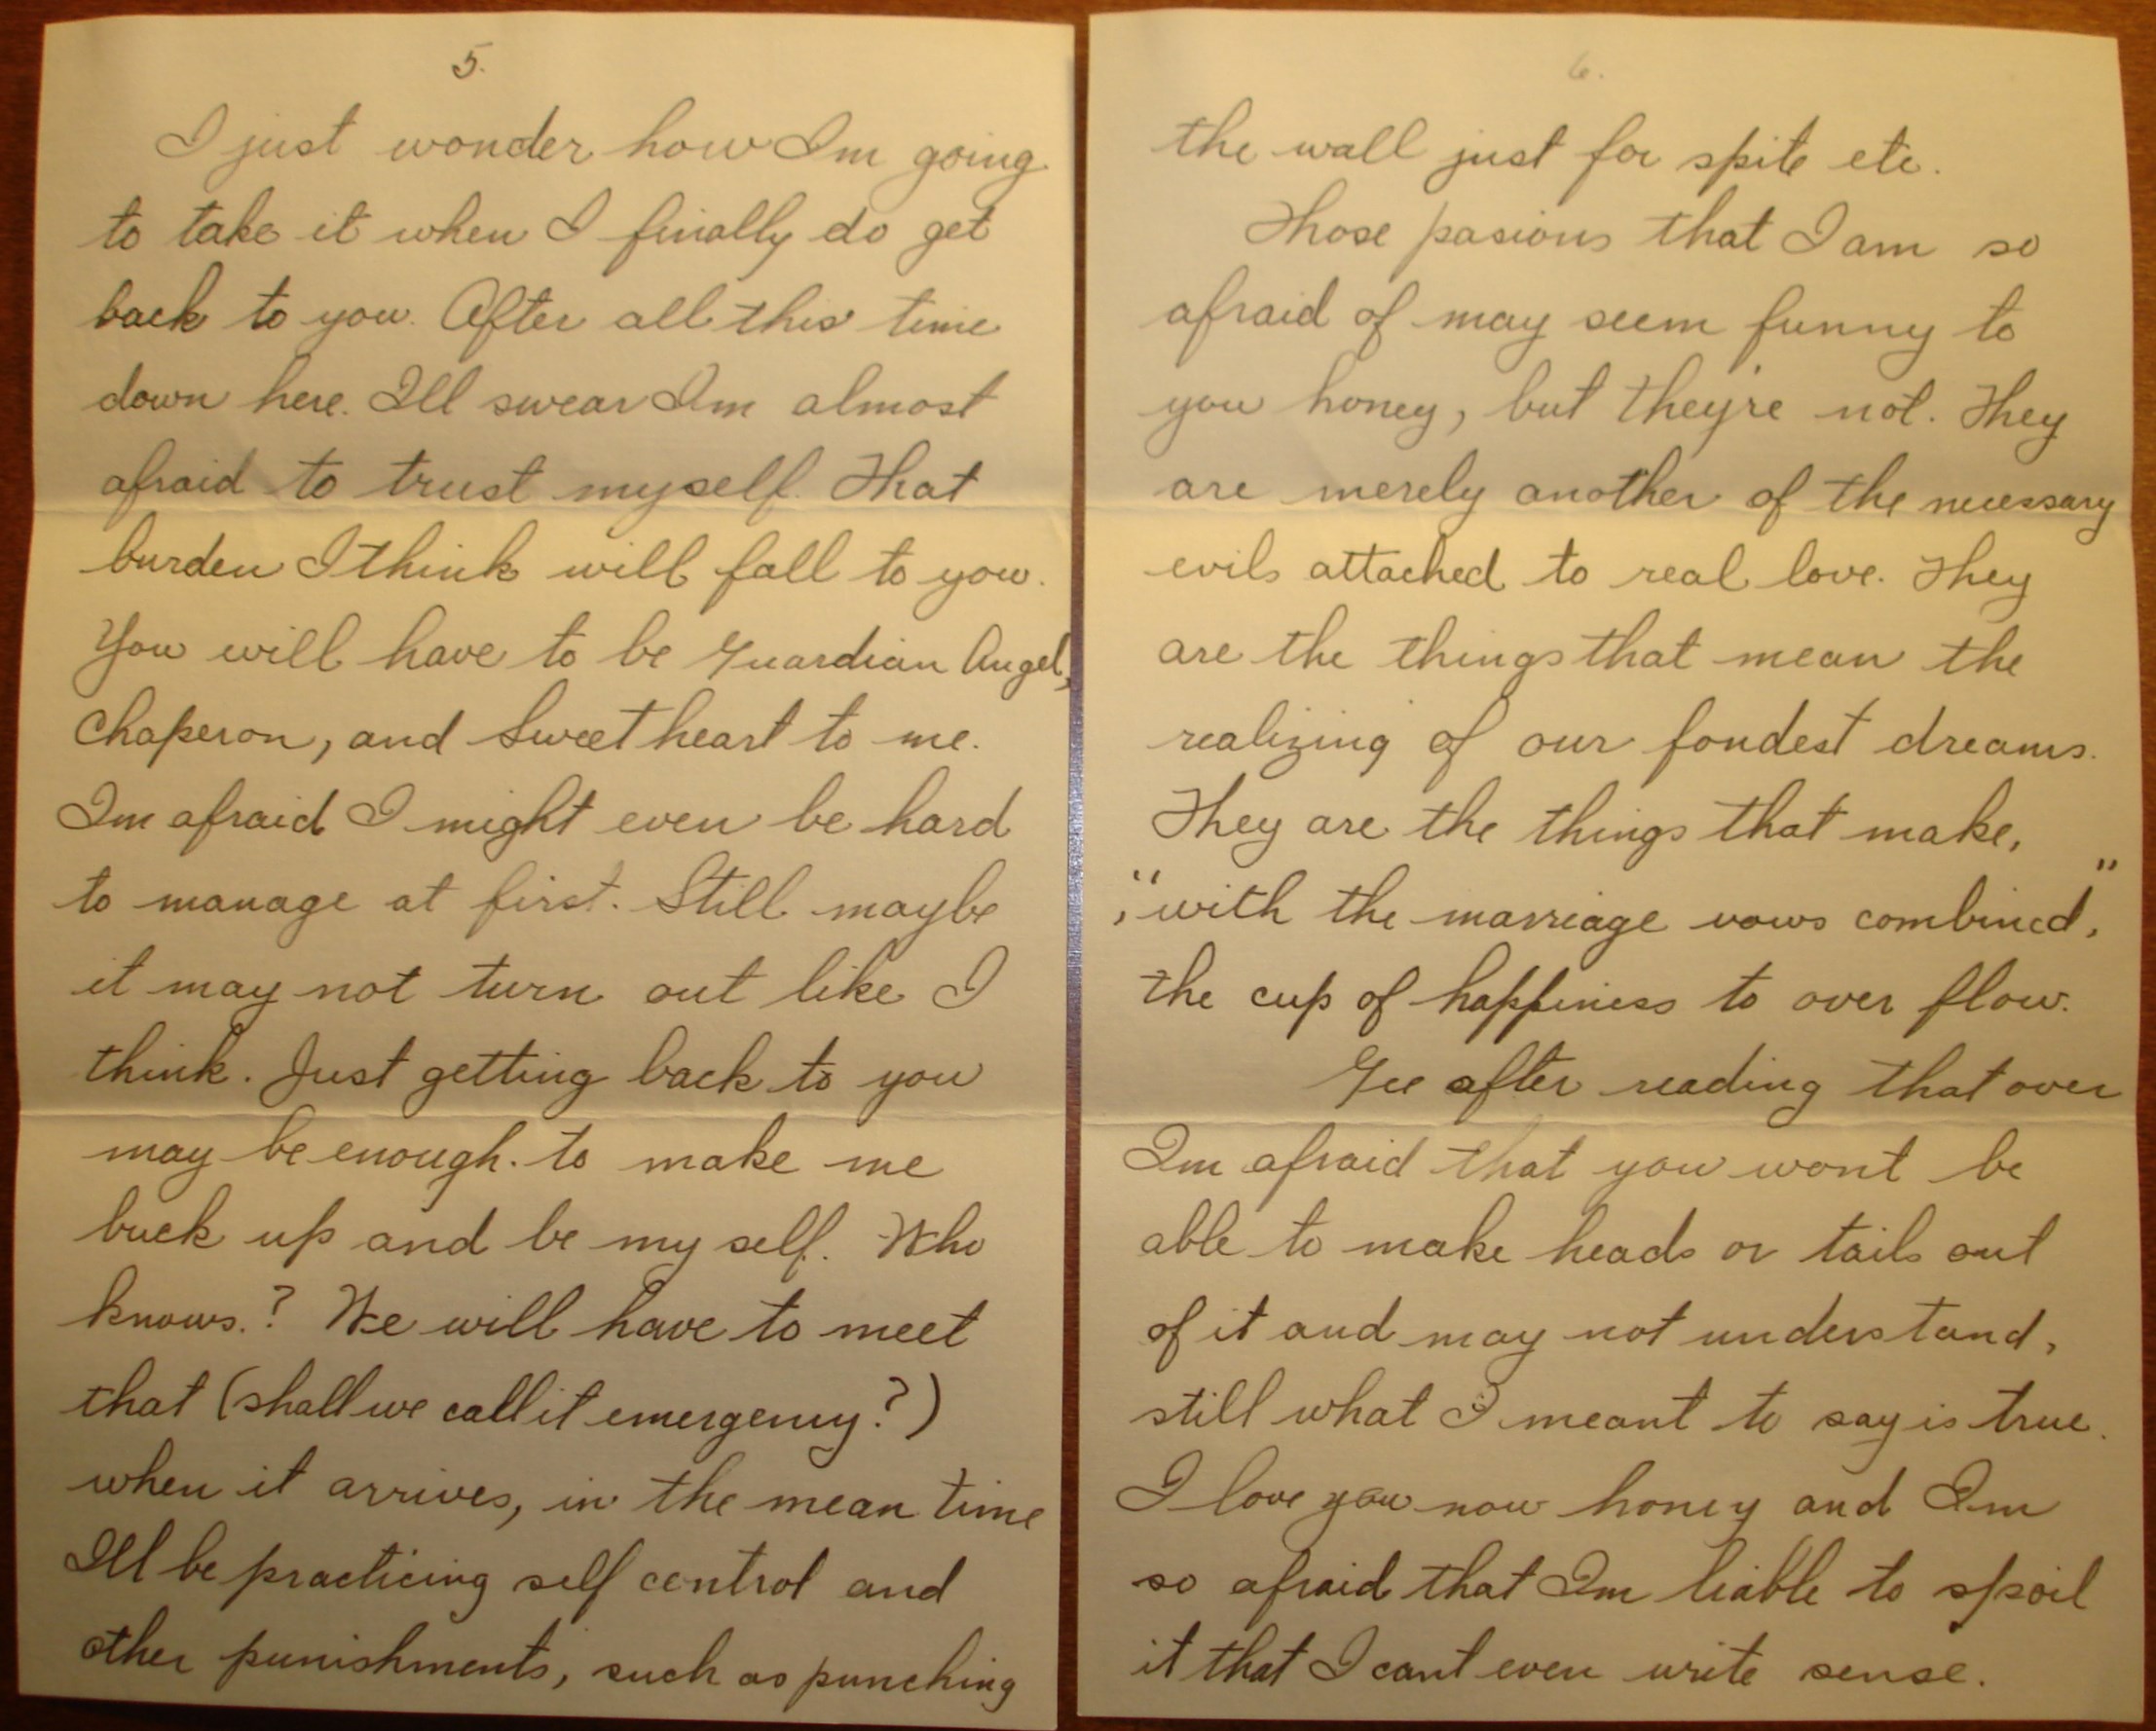 5.
I just wonder how Im going
to take it when I finally do get
back to you. After all this time
down here. Ill swear Im almost
afraid to trust myself. That
burden I think will fall to you.
You will have to be Guardian Angel,
Chaperon, and Sweetheart to me.
Im afraid I might even be hard
to manage at first. Still maybe
it may not turn out like I
think. Just getting back to you
may be enough. to make me
buck up and be my self. Who
knows.? We will have to meet
that (shall we call it emergency?)
when it arrives, in the mean time
Ill be practicing self control and
other punishments, such as punching
6.
the wall just for spite etc.
Those pasions that I am so
afraid of may seem funny to
you honey, but they're not. They
are merely another of the necessary
evils attached to real love. They
are the things that mean the
realizing of our fondest dreams.
They are the things that make,
"with the marriage vows combined,"
the cup of happiness to over flow.
Gee after reading that over
Im afraid that you wont be
able to make heads or tails out
of it and may not understand,
still what I meant to say is true.
I love you now honey and Im
so afraid that Im liable to spoil
it that I cant even write sense.